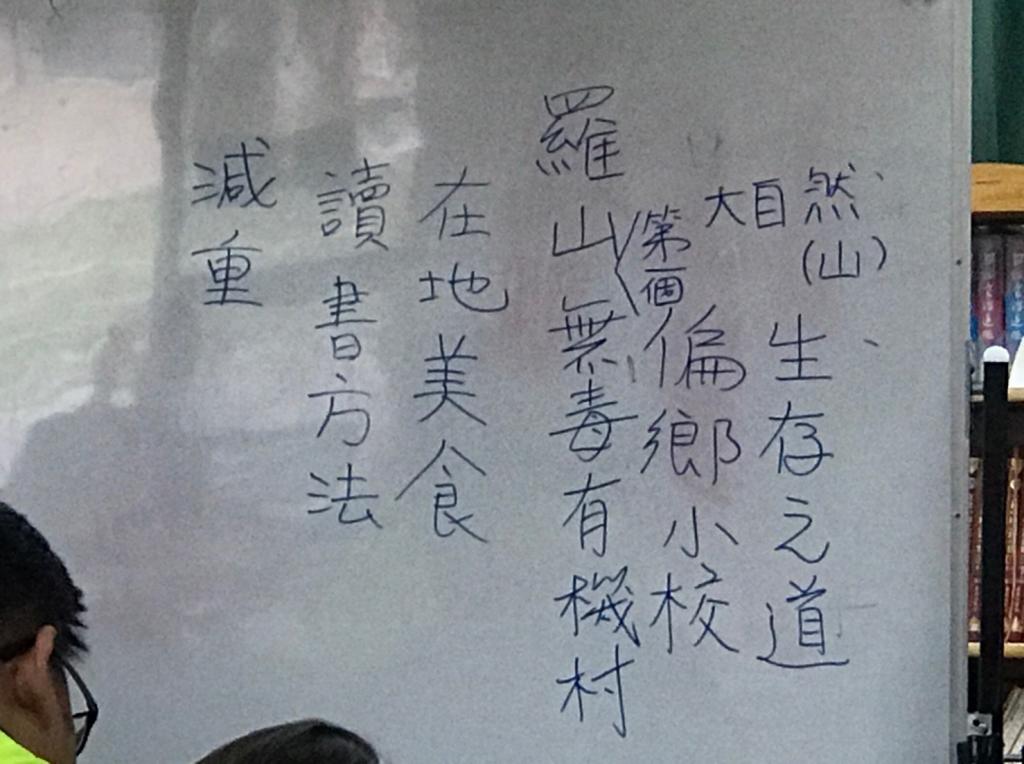 大自然
(山)
生存之道
第個
偏鄉小校
羅山無毒有機村
在地美食
讀書方法
減重